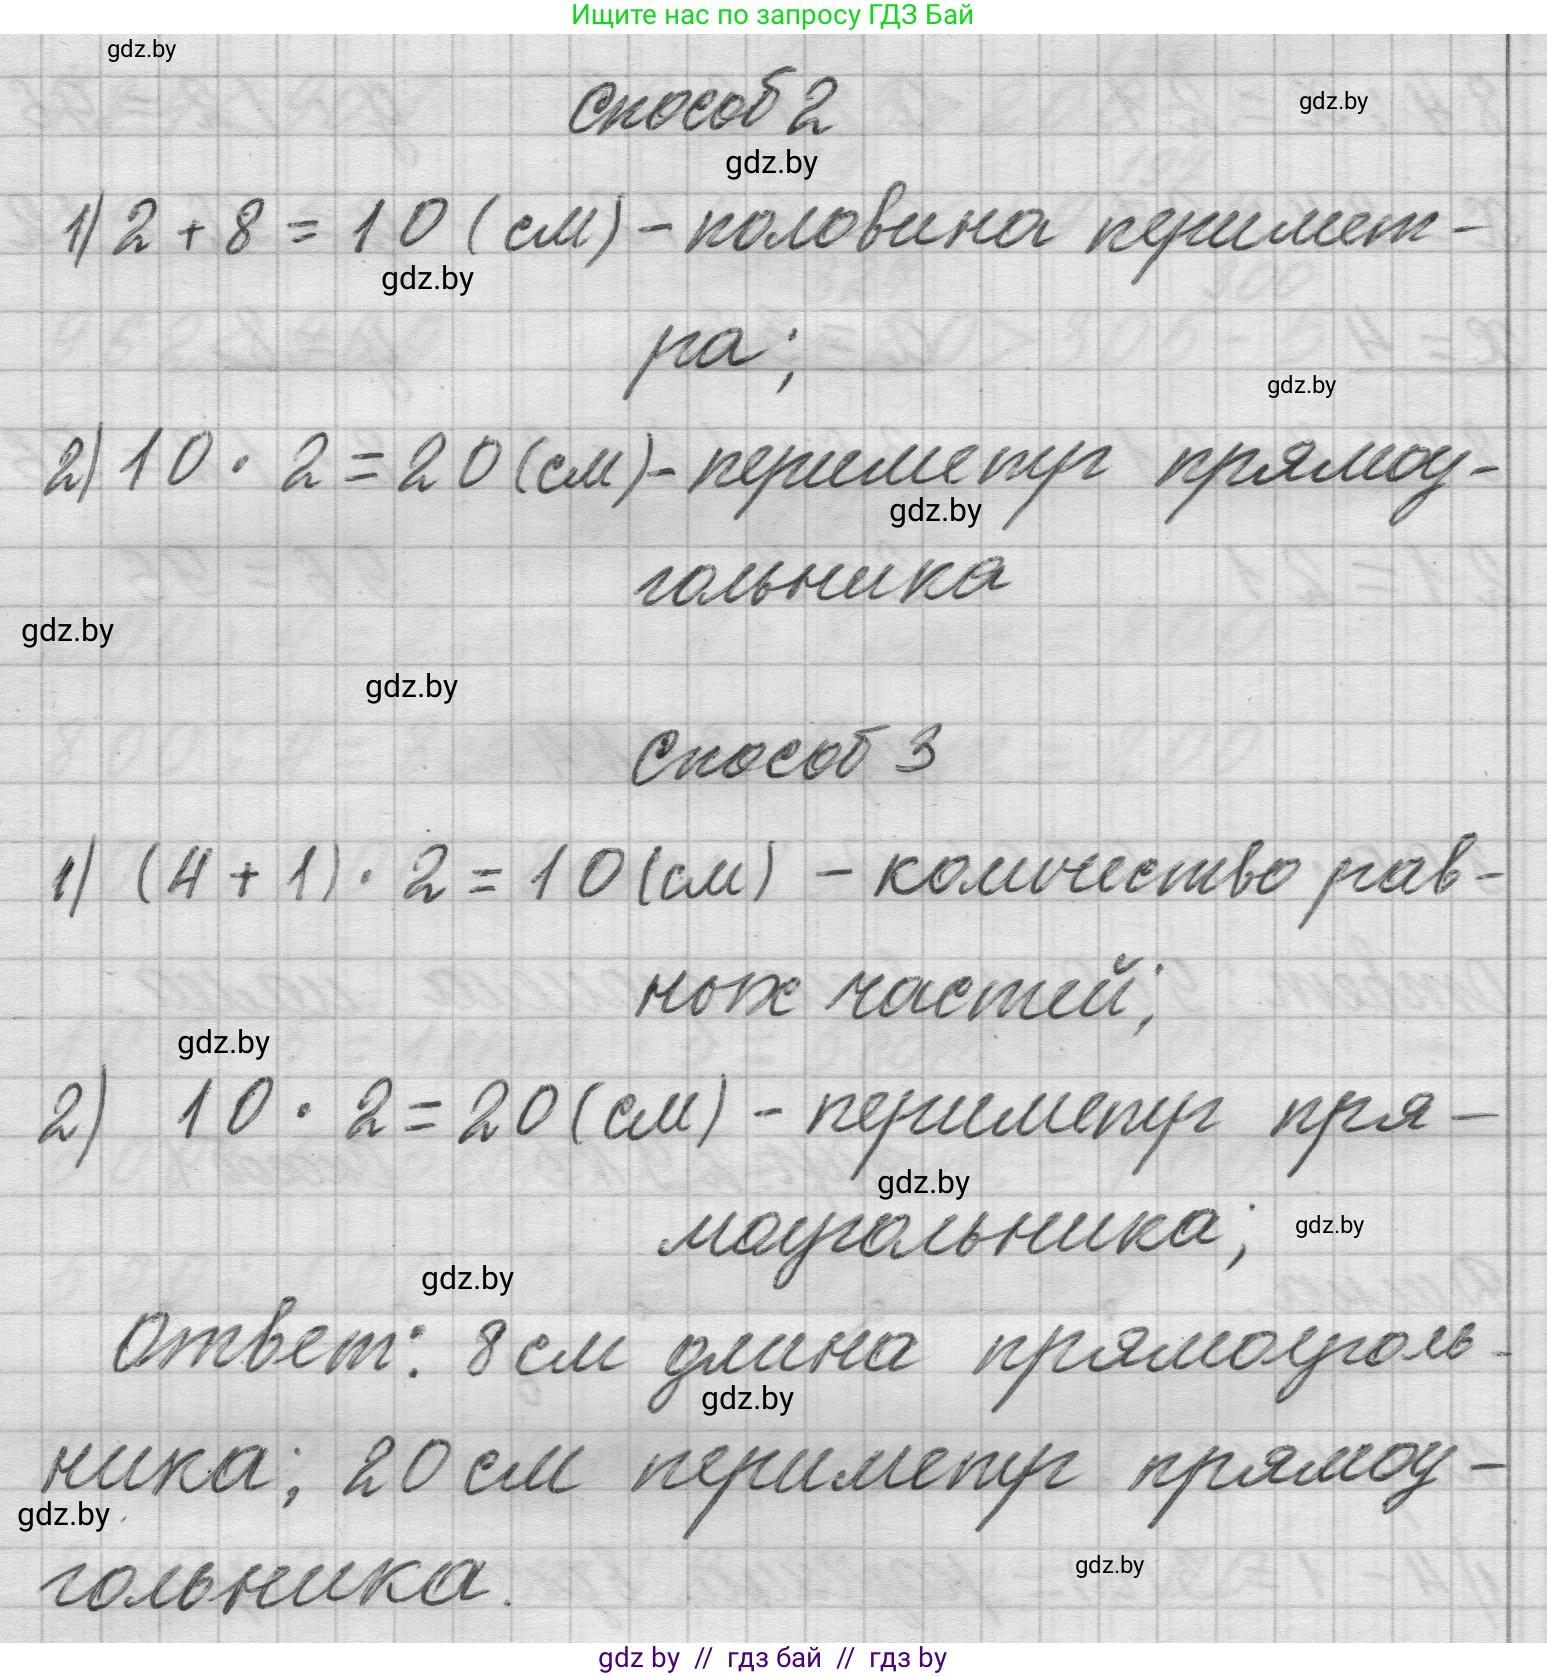 Ищите нас по запросу ГДЗ Бай
gdz.by
Способ 2
gdz.by
gdz.by
1) 2 + 8 = 10 (см) - половина перимет-
gdz.by
ра;
gdz.by
2) 10 · 2 = 20 (см) - периметр прямоу-
gdz.by
гольника
gdz.by
gdz.by
Способ 3
1) (4 + 1) · 2 = 10 (см) - количество рав-
ных частей;
gdz.by
2) 10 · 2 = 20 (см) - периметр пря-
gdz.by
моугольника;
gdz.by
gdz.by
Ответ: 8 см длина прямоуголь-
gdz.by
ника; 20 см периметр прямоу-
gdz.by
гольника.
gdz.by
gdz by // гдз бай // гдз by